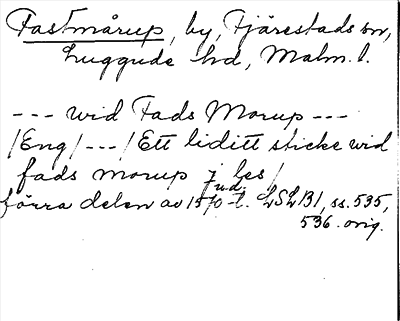 Fastmårup, by, Fjärestads sn,
Luggude hd, Malm. l.
--- wid Fads Morup ---
/Eng/ --- / Ett liditt sticke wid
fads morup j bes /
u.d.
förra delen av 1570-t. LSLB1, ss. 535,
536. orig.